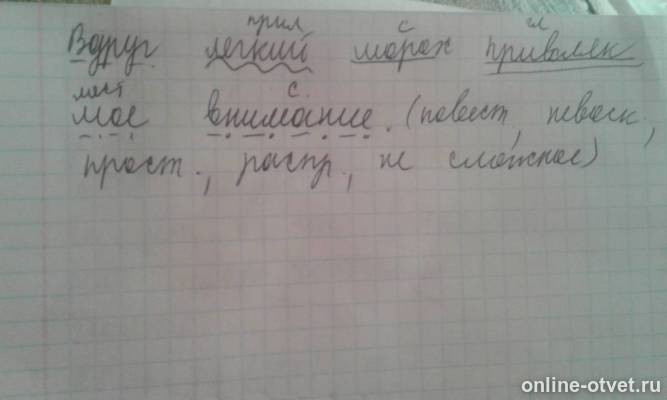 прил с гл
Вдруг легкий шорох привлек
мест с.
мое внимание. (повест, невоск,
прост., распр., не сложное)
online-otvet.ru